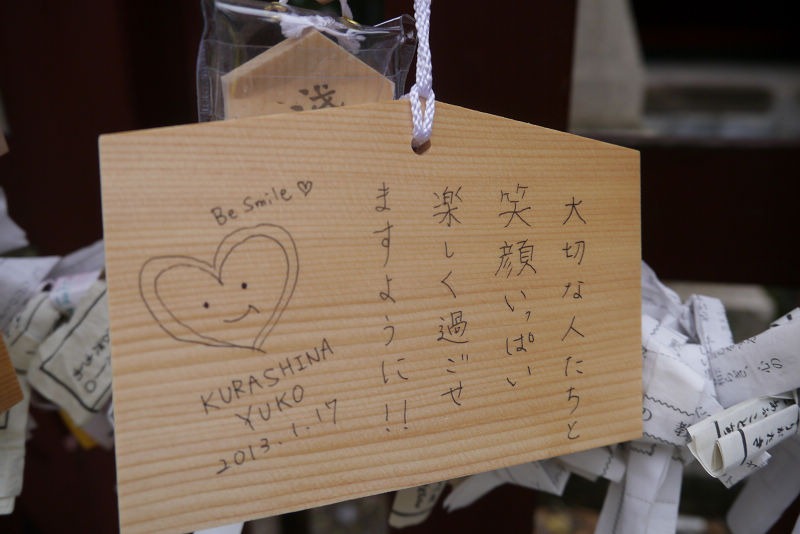 大切な人たちと
笑顔いっぱい
楽しく過ごせ
ますように!!
Be Smile♡
KURASHINA
YUKO
2013.1.17
浅